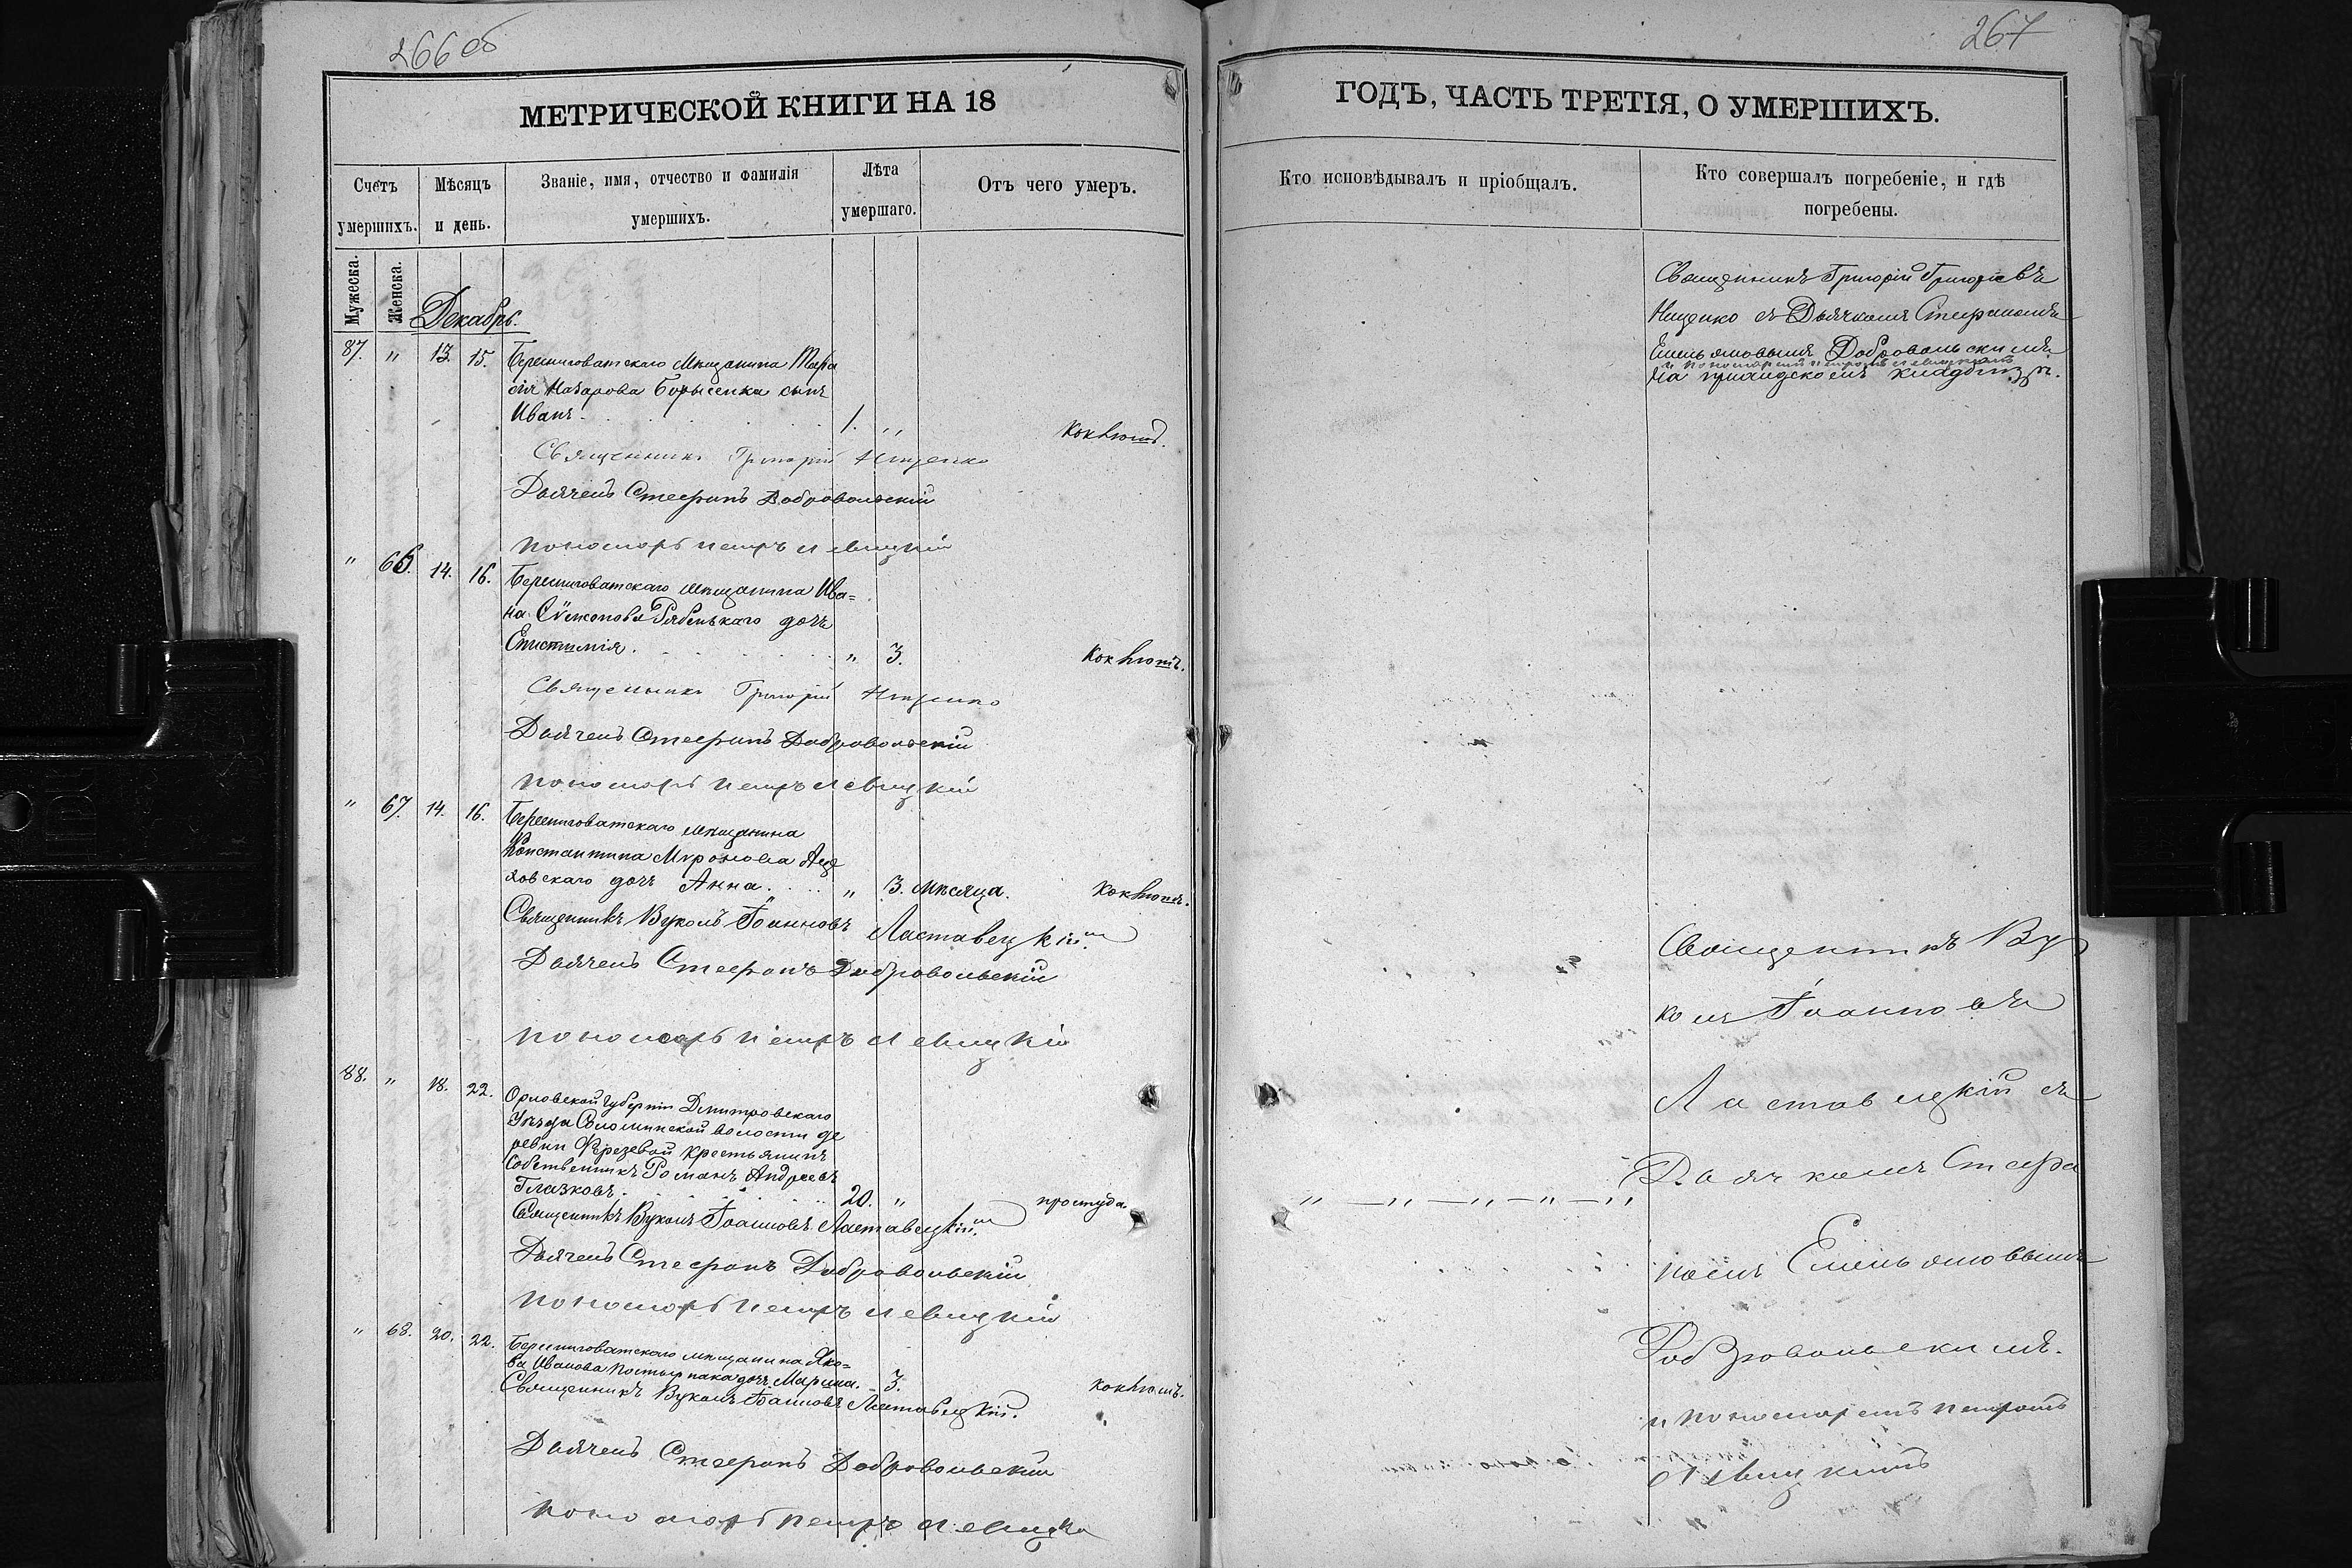 266 об
МЕТРИЧЕСКОЙ КНИГИ НА 18
Счетъ умершихъ.
Мѣсяцъ и день.
Званіе, имя, отчество и фамилія умершихъ.
Лѣта умершаго.
Отъ чего умеръ.
Мужеска.
Женска.
Декабрь.
87. " 13. 15. Берешноватскаго мѣщанина Тара
сія Назарова Борысенка сынъ
Иванъ. 1. " Коклюшъ.
Священникъ Григорій Ниценко
Дьячекъ Стефанъ Добровольскій
пономарь петръ левицкій
" 66. 14. 16. мѣщанина Ива=
на Сѵмеонова Рябенькаго дочь
Епистимія. " 3. Коклюшъ.
Священникъ Григорій Ниценко
Дьячекъ Стефанъ Добровольскій
пономарь петръ левицкій
" 67. 14. 16. мѣщанина
Константина Мѵронова
ловскаго дочь Анна. " 3. мѣсяца. Коклюшъ.
Священникъ Вуколъ Іоанновъ Ластавецкій.
Дьячекъ Стефанъ Добровольскій
пономарь петръ левицкій
88. " 18. 22. Орловской губерніи Дмитровскаго
Уѣзда волости де
ревни крестьянинъ
Собственникъ Романъ Андреевъ
Глазковъ. 20. " простуда.
Священникъ Вуколъ Іоанновъ Ластавецкій.
Дьячекъ Стефанъ Добровольскій
пономарь петръ левицкій
" 68. 20. 22. мѣщанина Яко=
ва Иванова дочь Марина. " 3. коклюшъ.
Священникъ Вуколъ Іоанновъ Ластавецкій.
Дьячекъ Стефанъ Добровольскій
пономарь петръ левицкій
267
ГОДЪ, ЧАСТЬ ТРЕТІЯ, О УМЕРШИХЪ.
Кто исповѣдывалъ и пріобщалъ.
Кто совершалъ погребеніе, и гдѣ погребены.
Священникъ Григорій Григоріевъ
Ниценко съ Дьячкомъ Стефаномъ
Емельяновымъ Добровольскимъ
и пономаремъ петромъ левицкимъ
на приходскомъ кладбищѣ.
Священникъ Ву
колъ Іоанновъ
Ластавецкій съ
" — " — " — " — " Дьячкомъ Стефа
номъ Емельяновымъ
Добровольскимъ.
и пономаремъ петромъ
левицкимъ